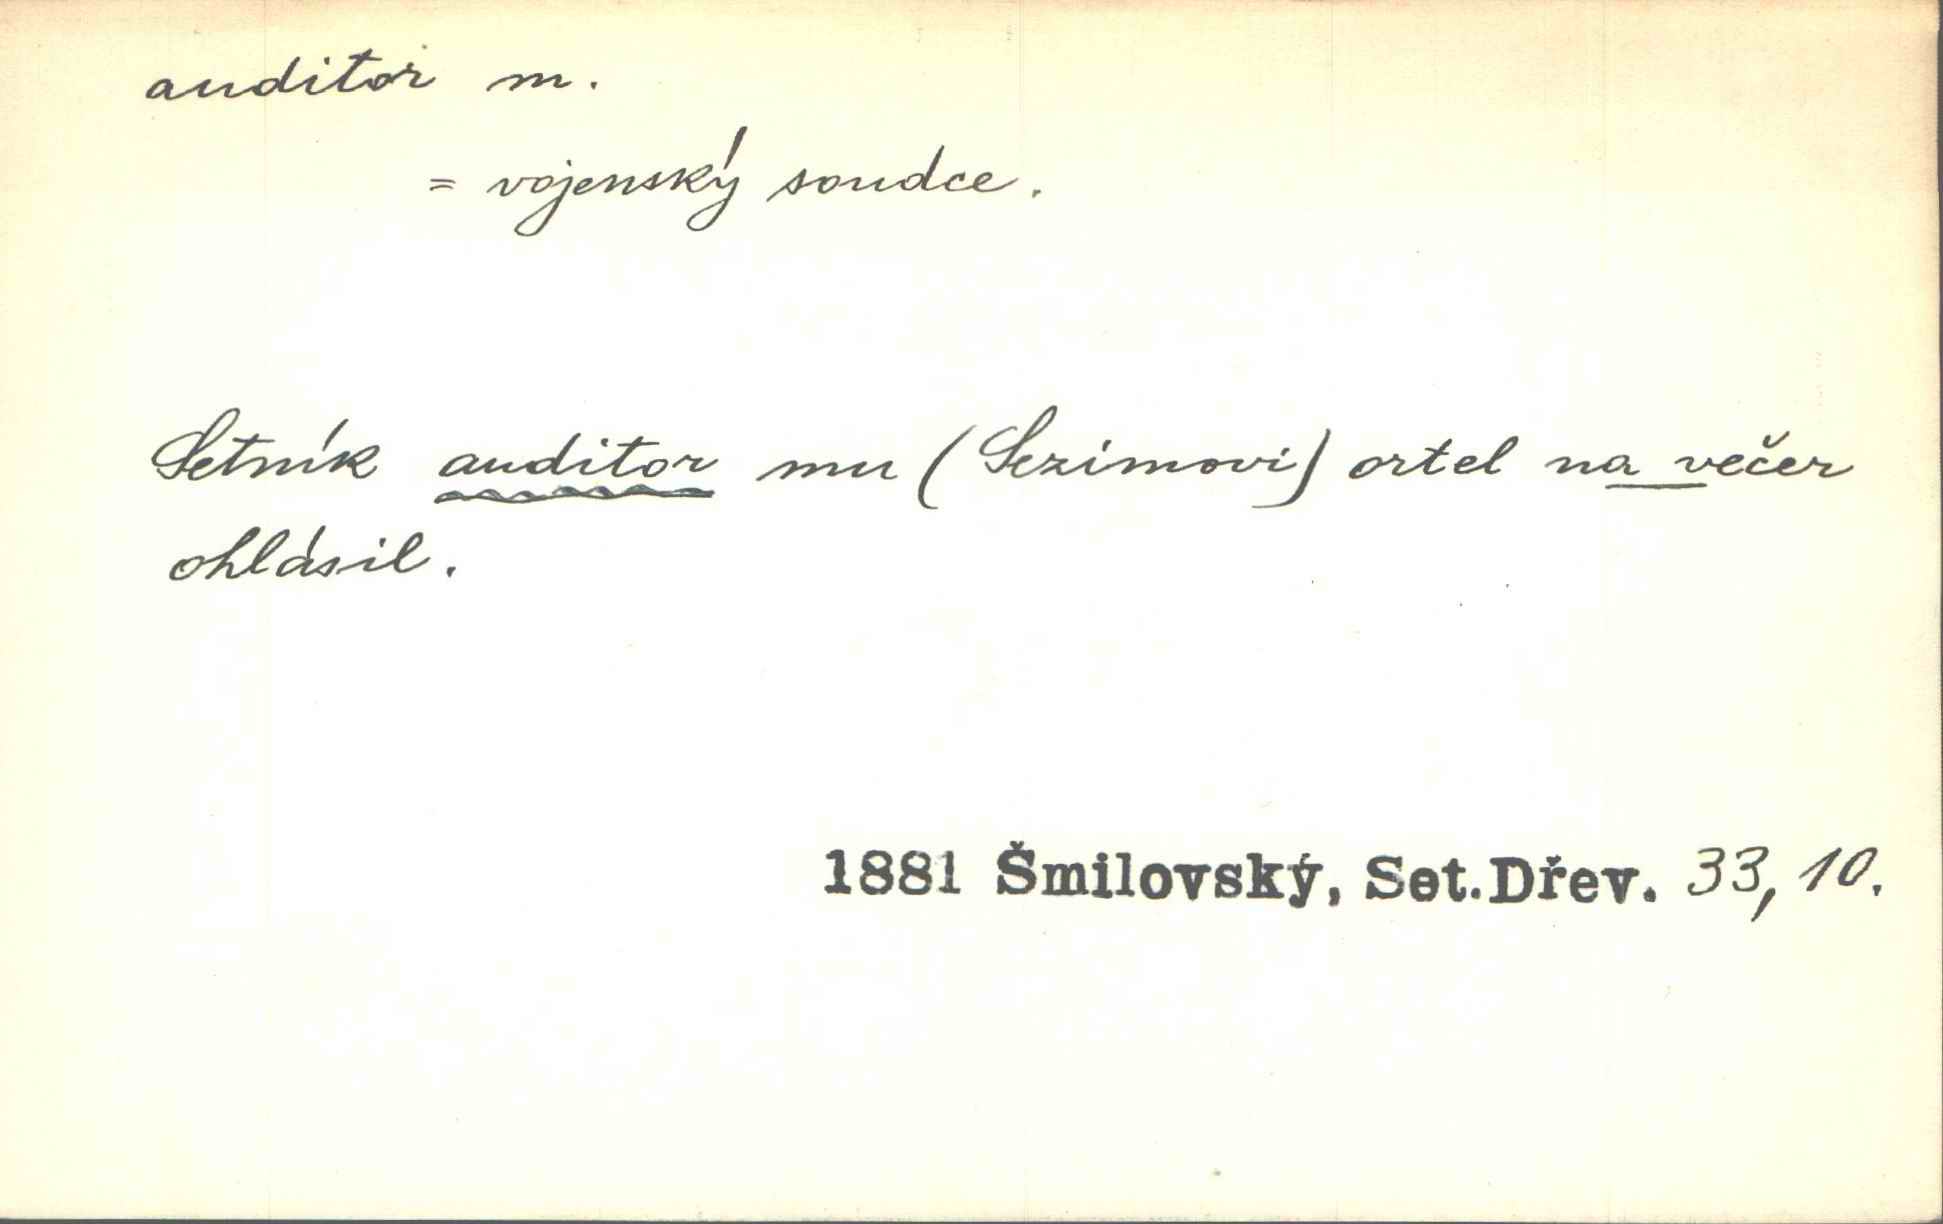 auditor m.
= vojenský soudce.
Setník auditor mu (Sezimovi) ortel na večer
ohlásil.
1881 Šmilovský, Set.Dřev. 33, 10.